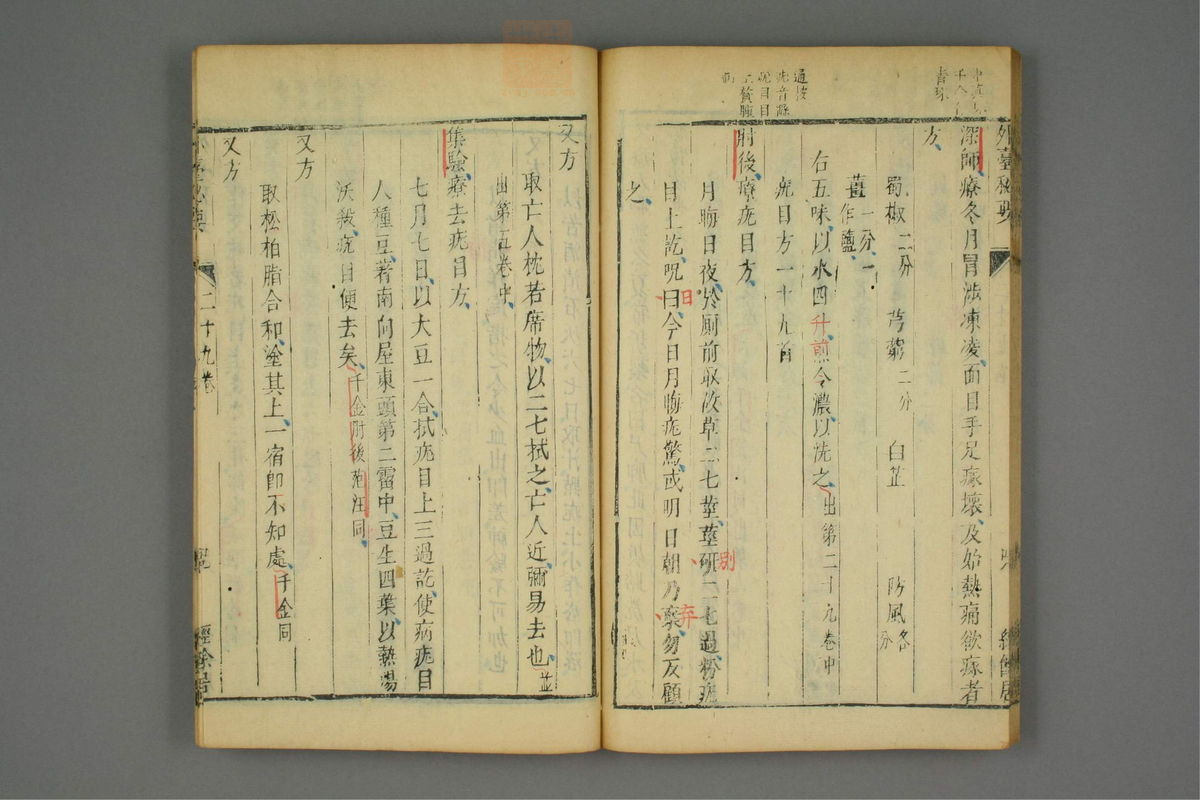 外臺秘要
深師療冬月冒涉凍凌面目手足瘃壞及始熱痛欲瘃者
方
蜀椒二分 芎藭二分 白芷 防風各分
薑一分一作鹽
右五味以水四升煎令濃以洗之出第二十九卷中
疣目方一十九首
肘後療疣目方
月晦日夜於廁前取故草二七莖莖研二七過粉疣 別
目上訖呪曰今日月晦疣驚或明日朝乃棄勿反顧 曰 弃
之
又方
取亡人枕若席物以二七拭之亡人近彌易去也並
出第五卷中
集驗療去疣目方
七月七日以大豆一合拭疣目上三過訖使病疣目
人種豆著南向屋東頭第二霤中豆生四葉以熱湯
沃殺疣目便去矣千金肘後范汪同
又方
取松柏脂合和塗其上一宿即不知處千金同
又方
二十九卷
經餘居